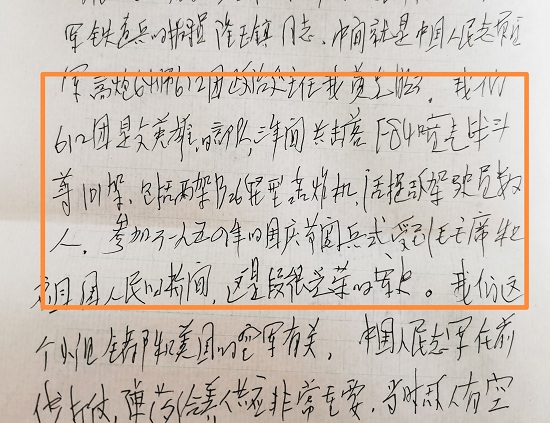 军铁道兵的 隆玉镇同志,中间就是中国人民志愿
军高炮64师612团政治处主任我黄 。我们
612团是个英雄的部队,三年间共击落F-84喷气战斗
等101架,包括两架B26轻型轰炸机,活捉敌驾驶员数
人,参加了一九五四年的国庆节阅兵式受到毛主席和
全国人民的接间,这是段很光荣的军史。我们这
个小组全都和美国的空军有关,中国人民志军在前
线打仗,弹药给养供应非常重要,当时敌人有空